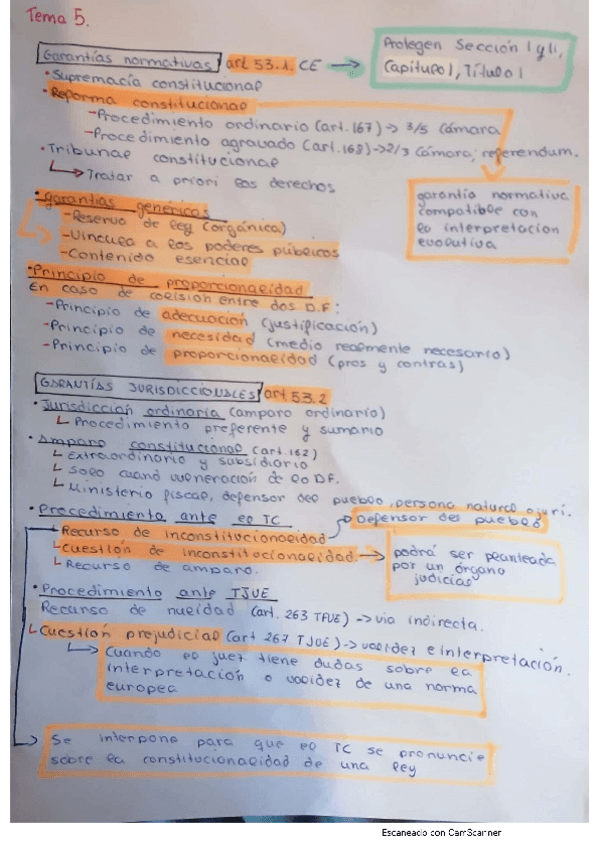 Tema 5.
Garantías normativas art 53.1. CE →
Protegen Sección I y II,
Capítulo I, Título I
· Supremacía constitucional
· Reforma constitucional
- Procedimiento ordinario (art. 167) → 3/5 Cámara
- Procedimiento agravado (art. 168) → 2/3 Cámara, referendum.
· Tribunal constitucional
↳ Tratar a priori los derechos
garantía normativa
compatible con
la interpretación
evolutiva
· garantías genéricas
- Reserva de ley (orgánica)
- Vincula a los poderes públicos
- Contenido esencial
· Principio de proporcionalidad
En caso de colisión entre dos D.F:
- Principio de adecuación (justificación)
- Principio de necesidad (medio realmente necesario)
- Principio de proporcionalidad (pros y contras)
GARANTÍAS JURISDICCIONALES art 53.2
· Jurisdicción ordinaria (amparo ordinario)
↳ Procedimiento preferente y sumario
· Amparo constitucional (art. 162)
↳ Extraordinario y subsidiario
↳ Solo cuand vulneración de lo DF.
↳ Ministerio fiscal, defensor del pueblo, persona natural o jurí.
· Procedimiento ante el TC
↳ Recurso de inconstitucionalidad → Defensor del pueblo
↳ Cuestión de inconstitucionalidad →
↳ Recurso de amparo.
podrá ser planteada
por un órgano
judicial
· Procedimiento ante TJUE
Recurso de nulidad (art. 263 TFUE) → vía indirecta.
↳ Cuestión prejudicial (art 267 TJUE) → validez e interpretación.
↳ Cuando el juez tiene dudas sobre la
interpretación o validez de una norma
europea
→ Se interpone para que el TC se pronuncie
sobre la constitucionalidad de una ley
Escaneado con CamScanner